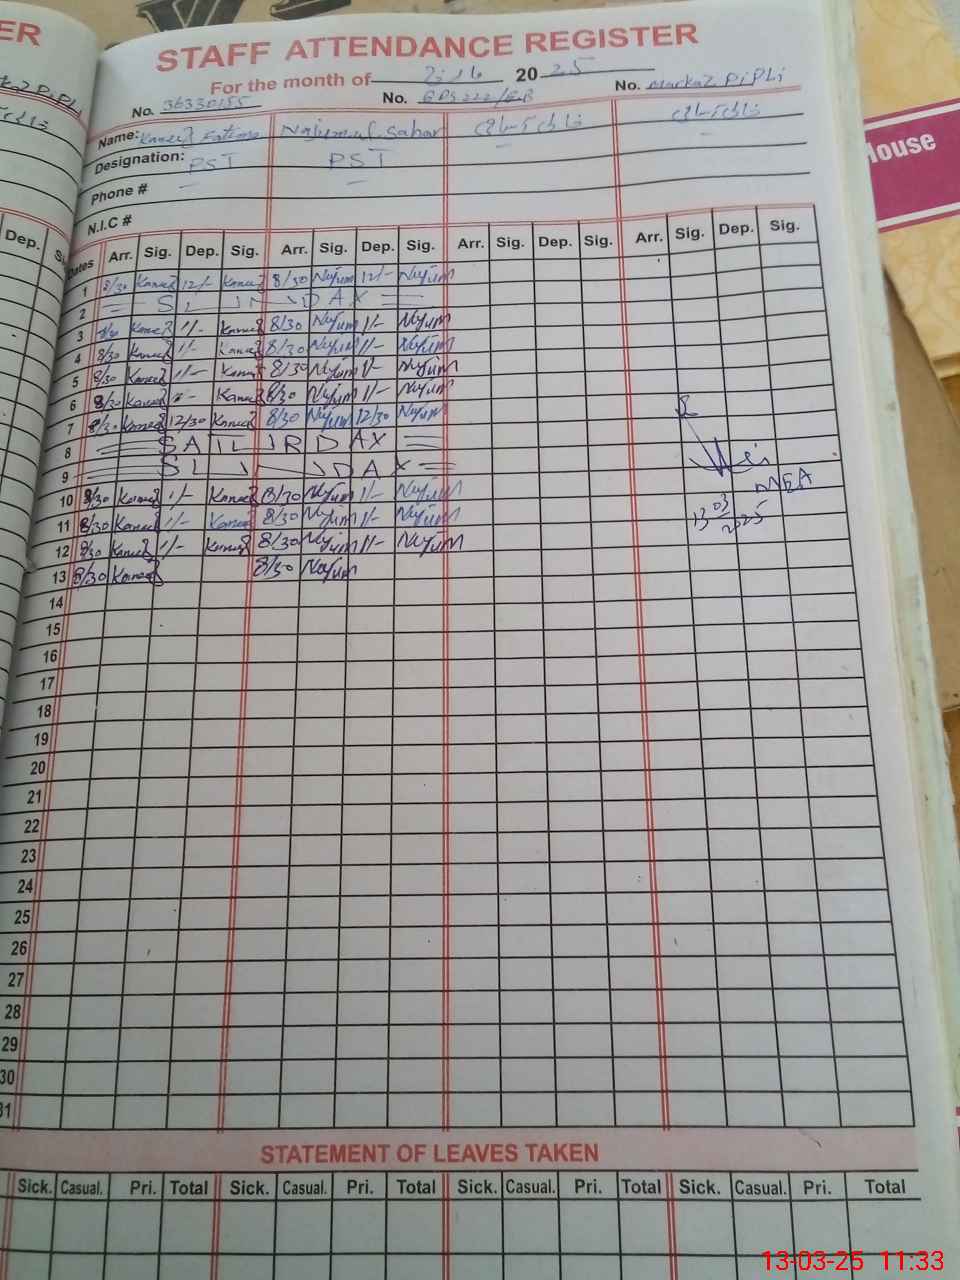 ER
STAFF ATTENDANCE REGISTER
For the month of 2025
No. 36330155 No. GPS 222/EB No. Markaz PiPLi
Name: Kaneez Fatima Najum-ul-Sahar
Designation: PST PST
Phone # - -
N.I.C #
Dep.
Dates Arr. Sig. Dep. Sig. Arr. Sig. Dep. Sig. Arr. Sig. Dep. Sig. Arr. Sig. Dep. Sig.
1 8/30 Kaneez 12/- Kaneez 8/30 Najum 12/- Najum
2 = SUNDAY =
3 8/30 Kaneez 1/- Kaneez 8/30 Najum 1/- Najum
4 8/30 Kaneez 1/- Kaneez 8/30 Najum 1/- Najum
5 8/30 Kaneez 1/- Kaneez 8/30 Najum 1/- Najum
6 8/30 Kaneez Kaneez 8/30 Najum 1/- Najum
7 8/30 Kaneez 12/30 Kaneez 8/30 Najum 12/30 Najum
8 = SATURDAY =
9 = SUNDAY =
10 8/30 Kaneez 1/- Kaneez 8/30 Najum 1/- Najum
MEA
11 8/30 Kaneez 1/- Kaneez 8/30 Najum 1/- Najum 13 03 2025
12 8/30 Kaneez 1/- Kaneez 8/30 Najum 1/- Najum
13 8/30 Kaneez 8/30 Najum
14
15
16
17
18
19
20
21
22
23
24
25
26
27
28
29
30
31
STATEMENT OF LEAVES TAKEN
Sick. Casual. Pri. Total Sick. Casual. Pri. Total Sick. Casual. Pri. Total Sick. Casual. Pri. Total
House
13-03-25 11:33